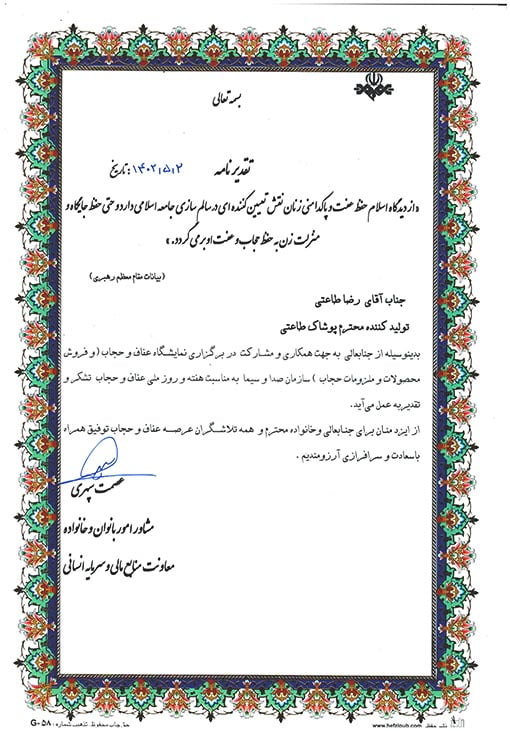 بسمه تعالی
تقدیر نامه
تاریخ: ۱۴۰۲٫۵٫۲
«از دیدگاه اسلام حفظ عفت و پاکدامنی زنان نقش تعیین کننده ای در سالم سازی جامعه اسلامی دارد و حتی حفظ جایگاه و
منزلت زن به حفظ حجاب و عفت او برمی گردد.»
(بیانات مقام معظم رهبری)
جناب آقای رضا طاعتی
تولید کننده محترم پوشاک طاعتی
بدینوسیله از جنابعالی به جهت همکاری و مشارکت در برگزاری نمایشگاه عفاف و حجاب (و فروش
محصولات و ملزومات حجاب) سازمان صدا و سیما به مناسبت هفته و روز ملی عفاف و حجاب تشکر و
تقدیر به عمل می‌آید.
از ایزد منان برای جنابعالی وخانواده محترم و همه تلاشگران عرصه عفاف و حجاب توفیق همراه
باسعادت و سرافرازی آرزومندیم.
عصمت سپهری
مشاور امور بانوان و خانواده
معاونت منابع مالی و سرمایه انسانی
www.hefzloub.com نشر حفظی
حق چاپ محفوظ تذهیب شماره: G-۵۸